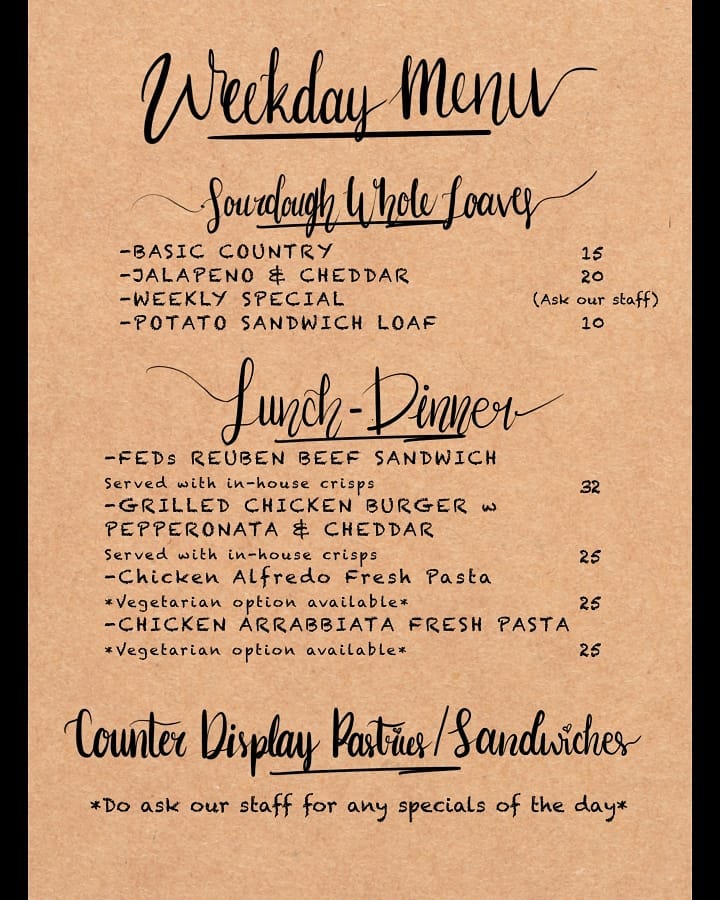 Weekday Menu
Sourdough Whole Loaves
-BASIC COUNTRY 15
-JALAPENO & CHEDDAR 20
-WEEKLY SPECIAL (Ask our staff)
-POTATO SANDWICH LOAF 10
Lunch-Dinner
-FEDs REUBEN BEEF SANDWICH
Served with in-house crisps 32
-GRILLED CHICKEN BURGER w
PEPPERONATA & CHEDDAR
Served with in-house crisps 25
-Chicken Alfredo Fresh Pasta
*Vegetarian option available* 25
-CHICKEN ARRABBIATA FRESH PASTA
*Vegetarian option available* 25
Counter Display Pastries/Sandwiches
*Do ask our staff for any specials of the day*